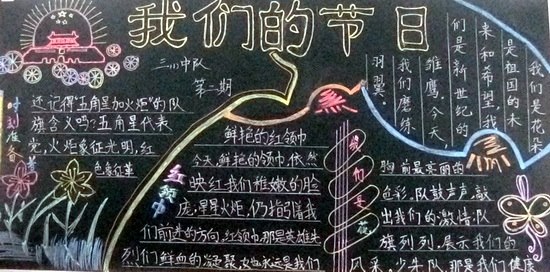 我们的节日
三(8)中队
第一期
时刻准备着
还记得“五角星加火炬”的队
旗含义吗?五角星代表
党,火炬象征光明,红
色象征革
红领巾
鲜艳的红领巾
今天,鲜艳的领巾,依然
映红我们稚嫩的脸
庞,星星火炬,仍指引着我
们前进的方向,红领巾,那是英雄先
烈们鲜血的凝聚,
我们是花朵
是祖国的未
来和希望,我
们是新世纪的
雏鹰,今天,
我们磨练
羽翼,
我们是
胸前最亮丽的
色彩,队鼓声声,敲
出我们的激情,队
旗列列,展示我们的
风采,少先队,那是我们健康